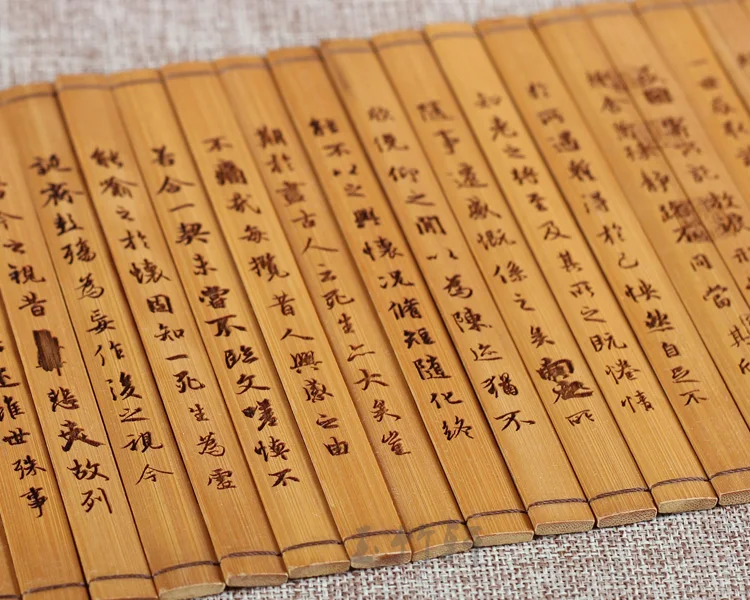 一世或取
因寄所託放浪形
趣舍萬殊靜躁不同當其欣
於所遇蹔得於己怏然自足不
知老之將至及其所之既惓情
隨事遷感慨係之矣向之所
欣俛仰之閒以為陳迹猶不
能不以之興懷況脩短隨化終
期於盡古人云死生亦大矣豈
不痛哉每攬昔人興感之由
若合一契未嘗不臨文嗟悼不
能喻之於懷固知一死生為虛
誕齊彭殤為妄作後之視今
由今之視昔悲夫故列
述雖世殊事